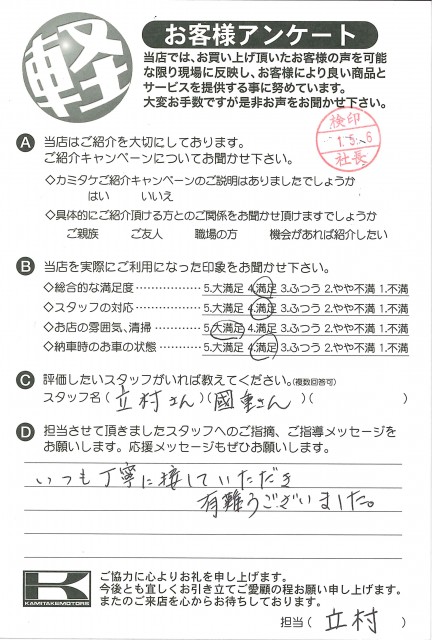 軽
お客様アンケート
当店では、お買い上げ頂いたお客様の声を可能
な限り現場に反映し、お客様により良い商品と
サービスを提供する事に努めています。
大変お手数ですが是非お声をお聞かせ下さい。
検印
1.5.-6
社長
A 当店はご紹介を大切にしております。
ご紹介キャンペーンについてお聞かせ下さい。
◇カミタケご紹介キャンペーンのご説明はありましたでしょうか
はい いいえ
◇具体的にご紹介頂ける方とのご関係をお聞かせ頂けますでしょうか
ご親族 ご友人 職場の方 機会があれば紹介したい
B 当店を実際にご利用になった印象をお聞かせ下さい。
◇総合的な満足度 ⋯⋯⋯⋯⋯ 5.大満足 4.満足 3.ふつう 2.やや不満 1.不満
◇スタッフの対応 ⋯⋯⋯⋯⋯ 5.大満足 4.満足 3.ふつう 2.やや不満 1.不満
◇お店の雰囲気、清掃 ⋯⋯⋯ 5.大満足 4.満足 3.ふつう 2.やや不満 1.不満
◇納車時のお車の状態 ⋯⋯⋯ 5.大満足 4.満足 3.ふつう 2.やや不満 1.不満
C 評価したいスタッフがいれば教えてください。(複数回答可)
スタッフ名 ( 立村さん ) ( 國重さん ) ( )
D 担当させて頂きましたスタッフへのご指摘、ご指導メッセージを
お願いします。応援メッセージもぜひお願いします。
いつも丁寧に接していただき
有難うございました。
K
KAMITAKEMOTORS
ご協力に心よりお礼を申し上げます。
今後とも宜しくお引き立てご愛顧の程お願い申し上げます。
またのご来店を心からお待ちしております。
担当 ( 立村 )